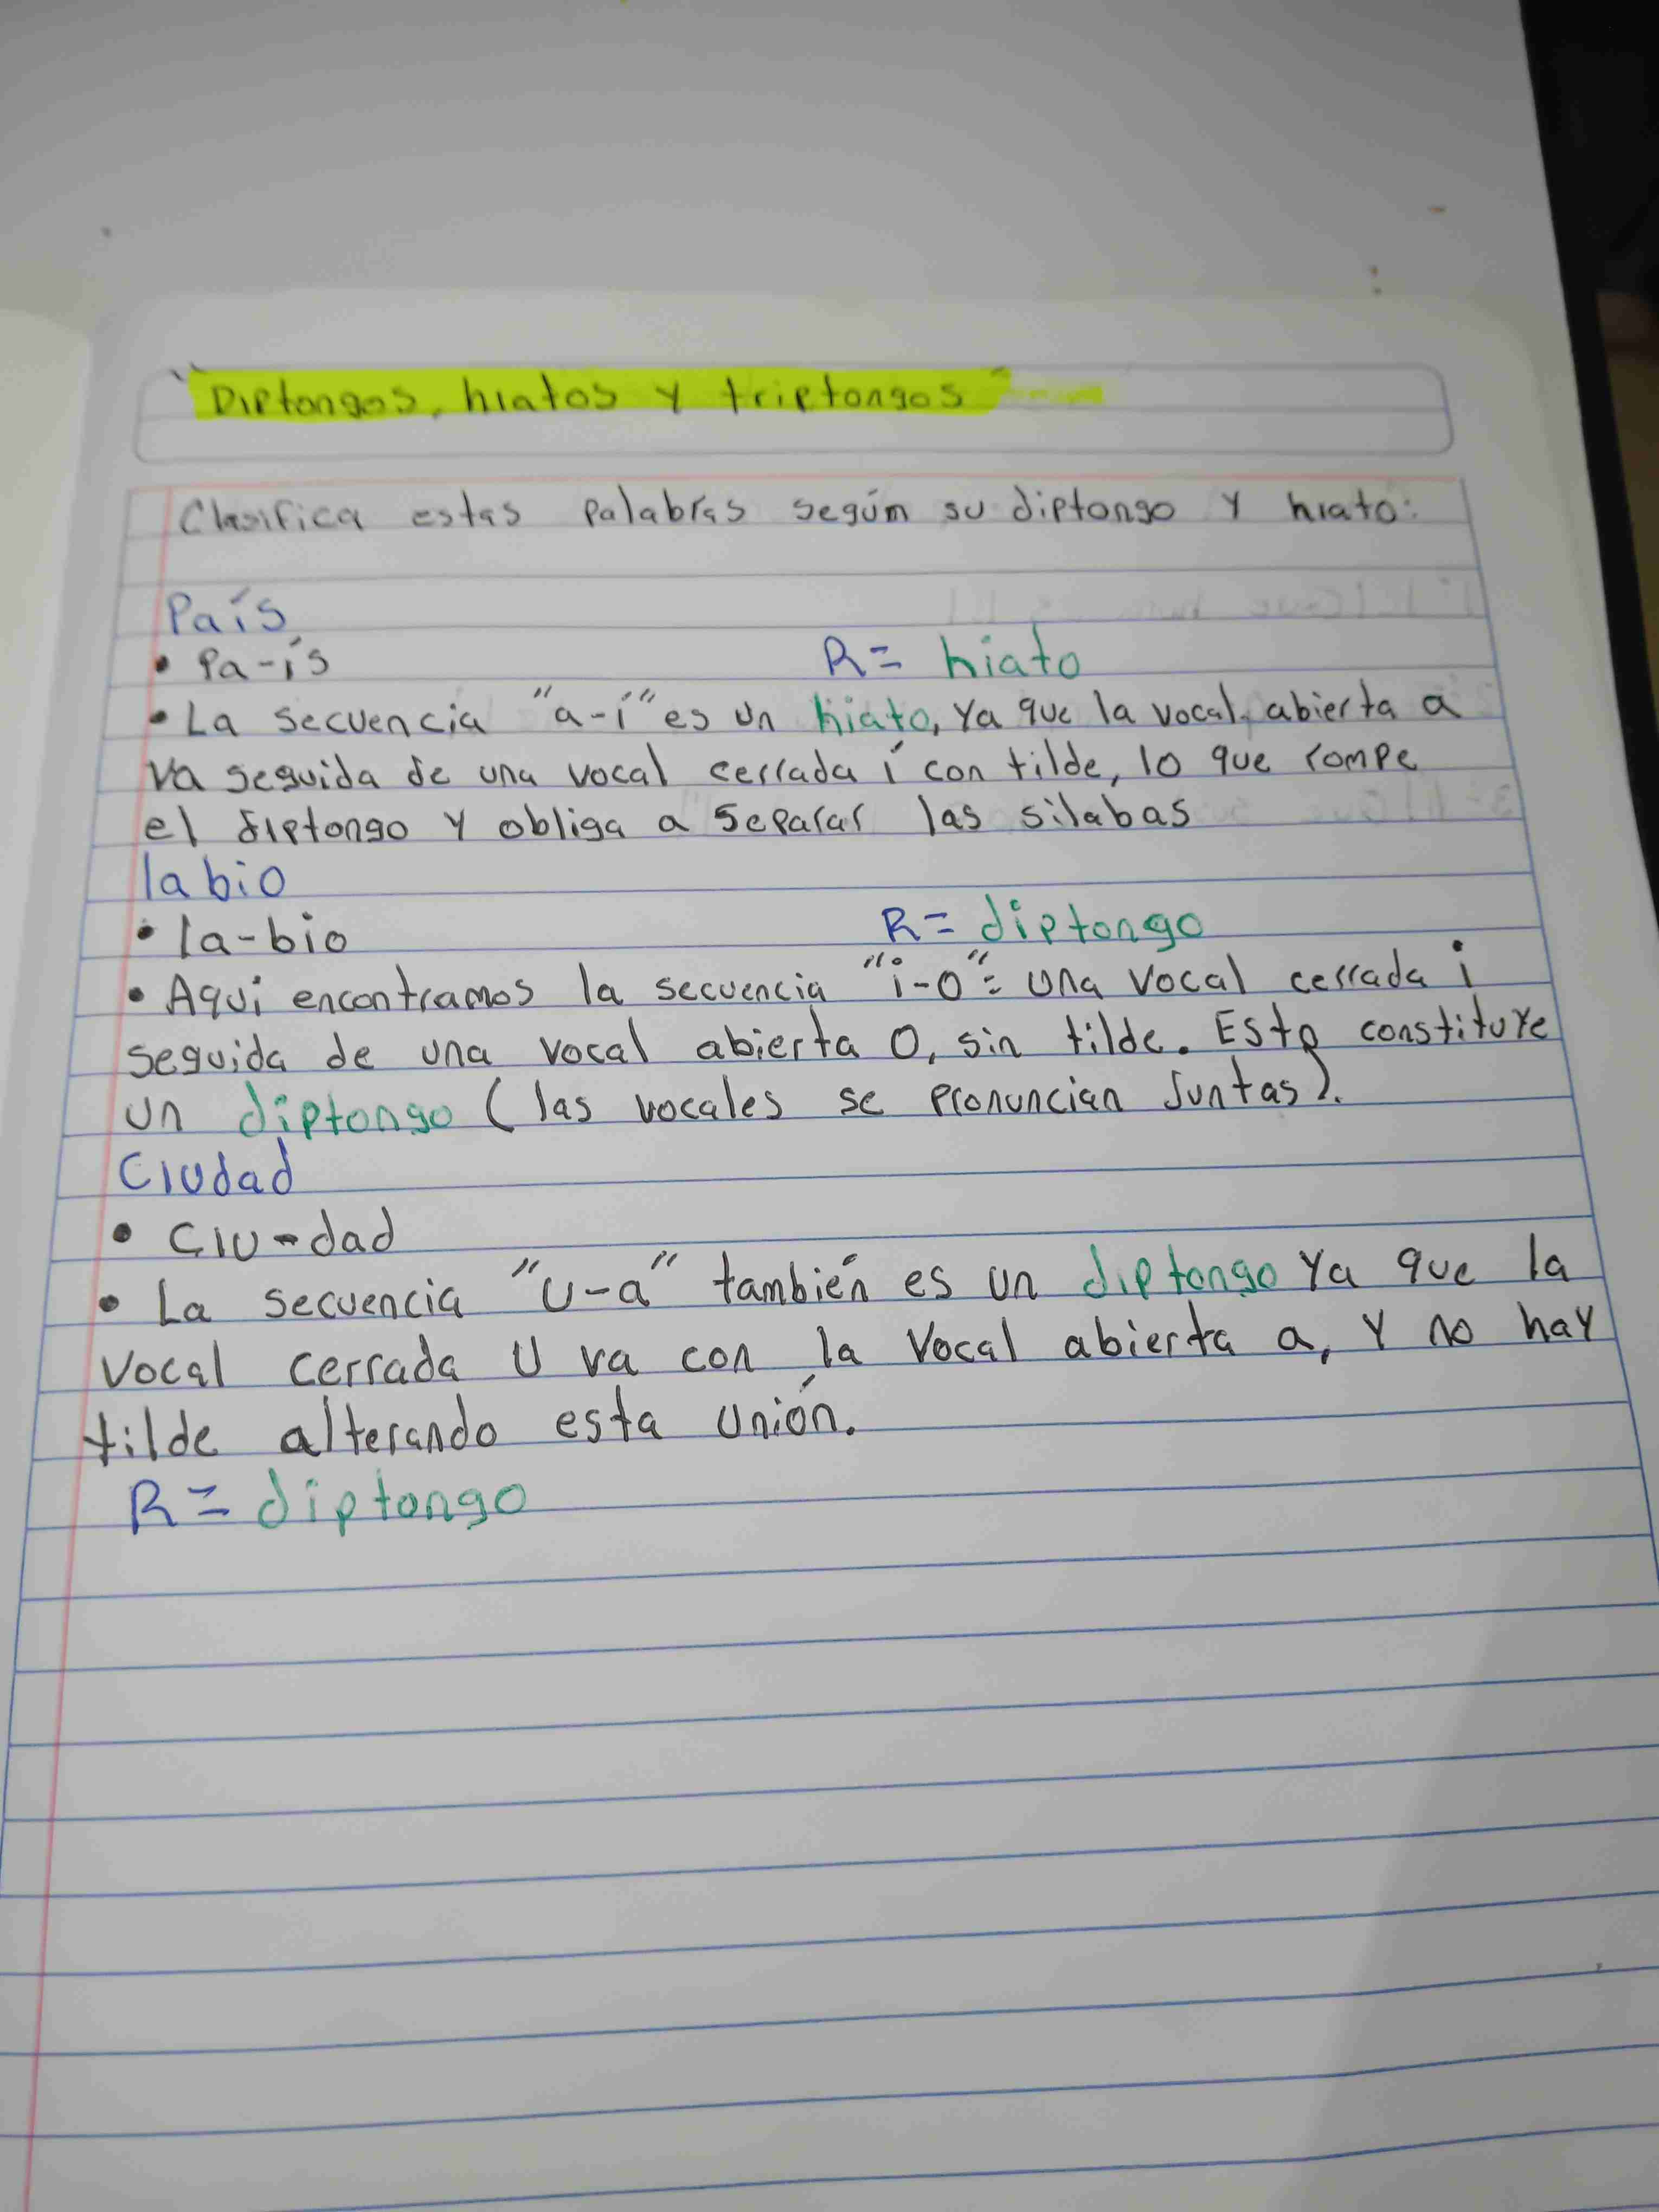 "Diptongos, hiatos y triptongos"
Clasifica estas palabras según su diptongo y hiato:
País
• Pa-ís R= hiato
• La secuencia "a-í" es un hiato, ya que la vocal abierta a
va seguida de una vocal cerrada í con tilde, lo que rompe
el diptongo y obliga a separar las silabas
labio
• la-bio R= diptongo
• Aquí encontramos la secuencia "i-o": una vocal cerrada i
seguida de una vocal abierta o, sin tilde. Esto constituye
un diptongo (las vocales se pronuncian juntas).
Ciudad
• Ciu-dad
• La secuencia "u-a" también es un diptongo ya que la
vocal cerrada u va con la vocal abierta a, y no hay
tilde alterando esta unión.
R= diptongo